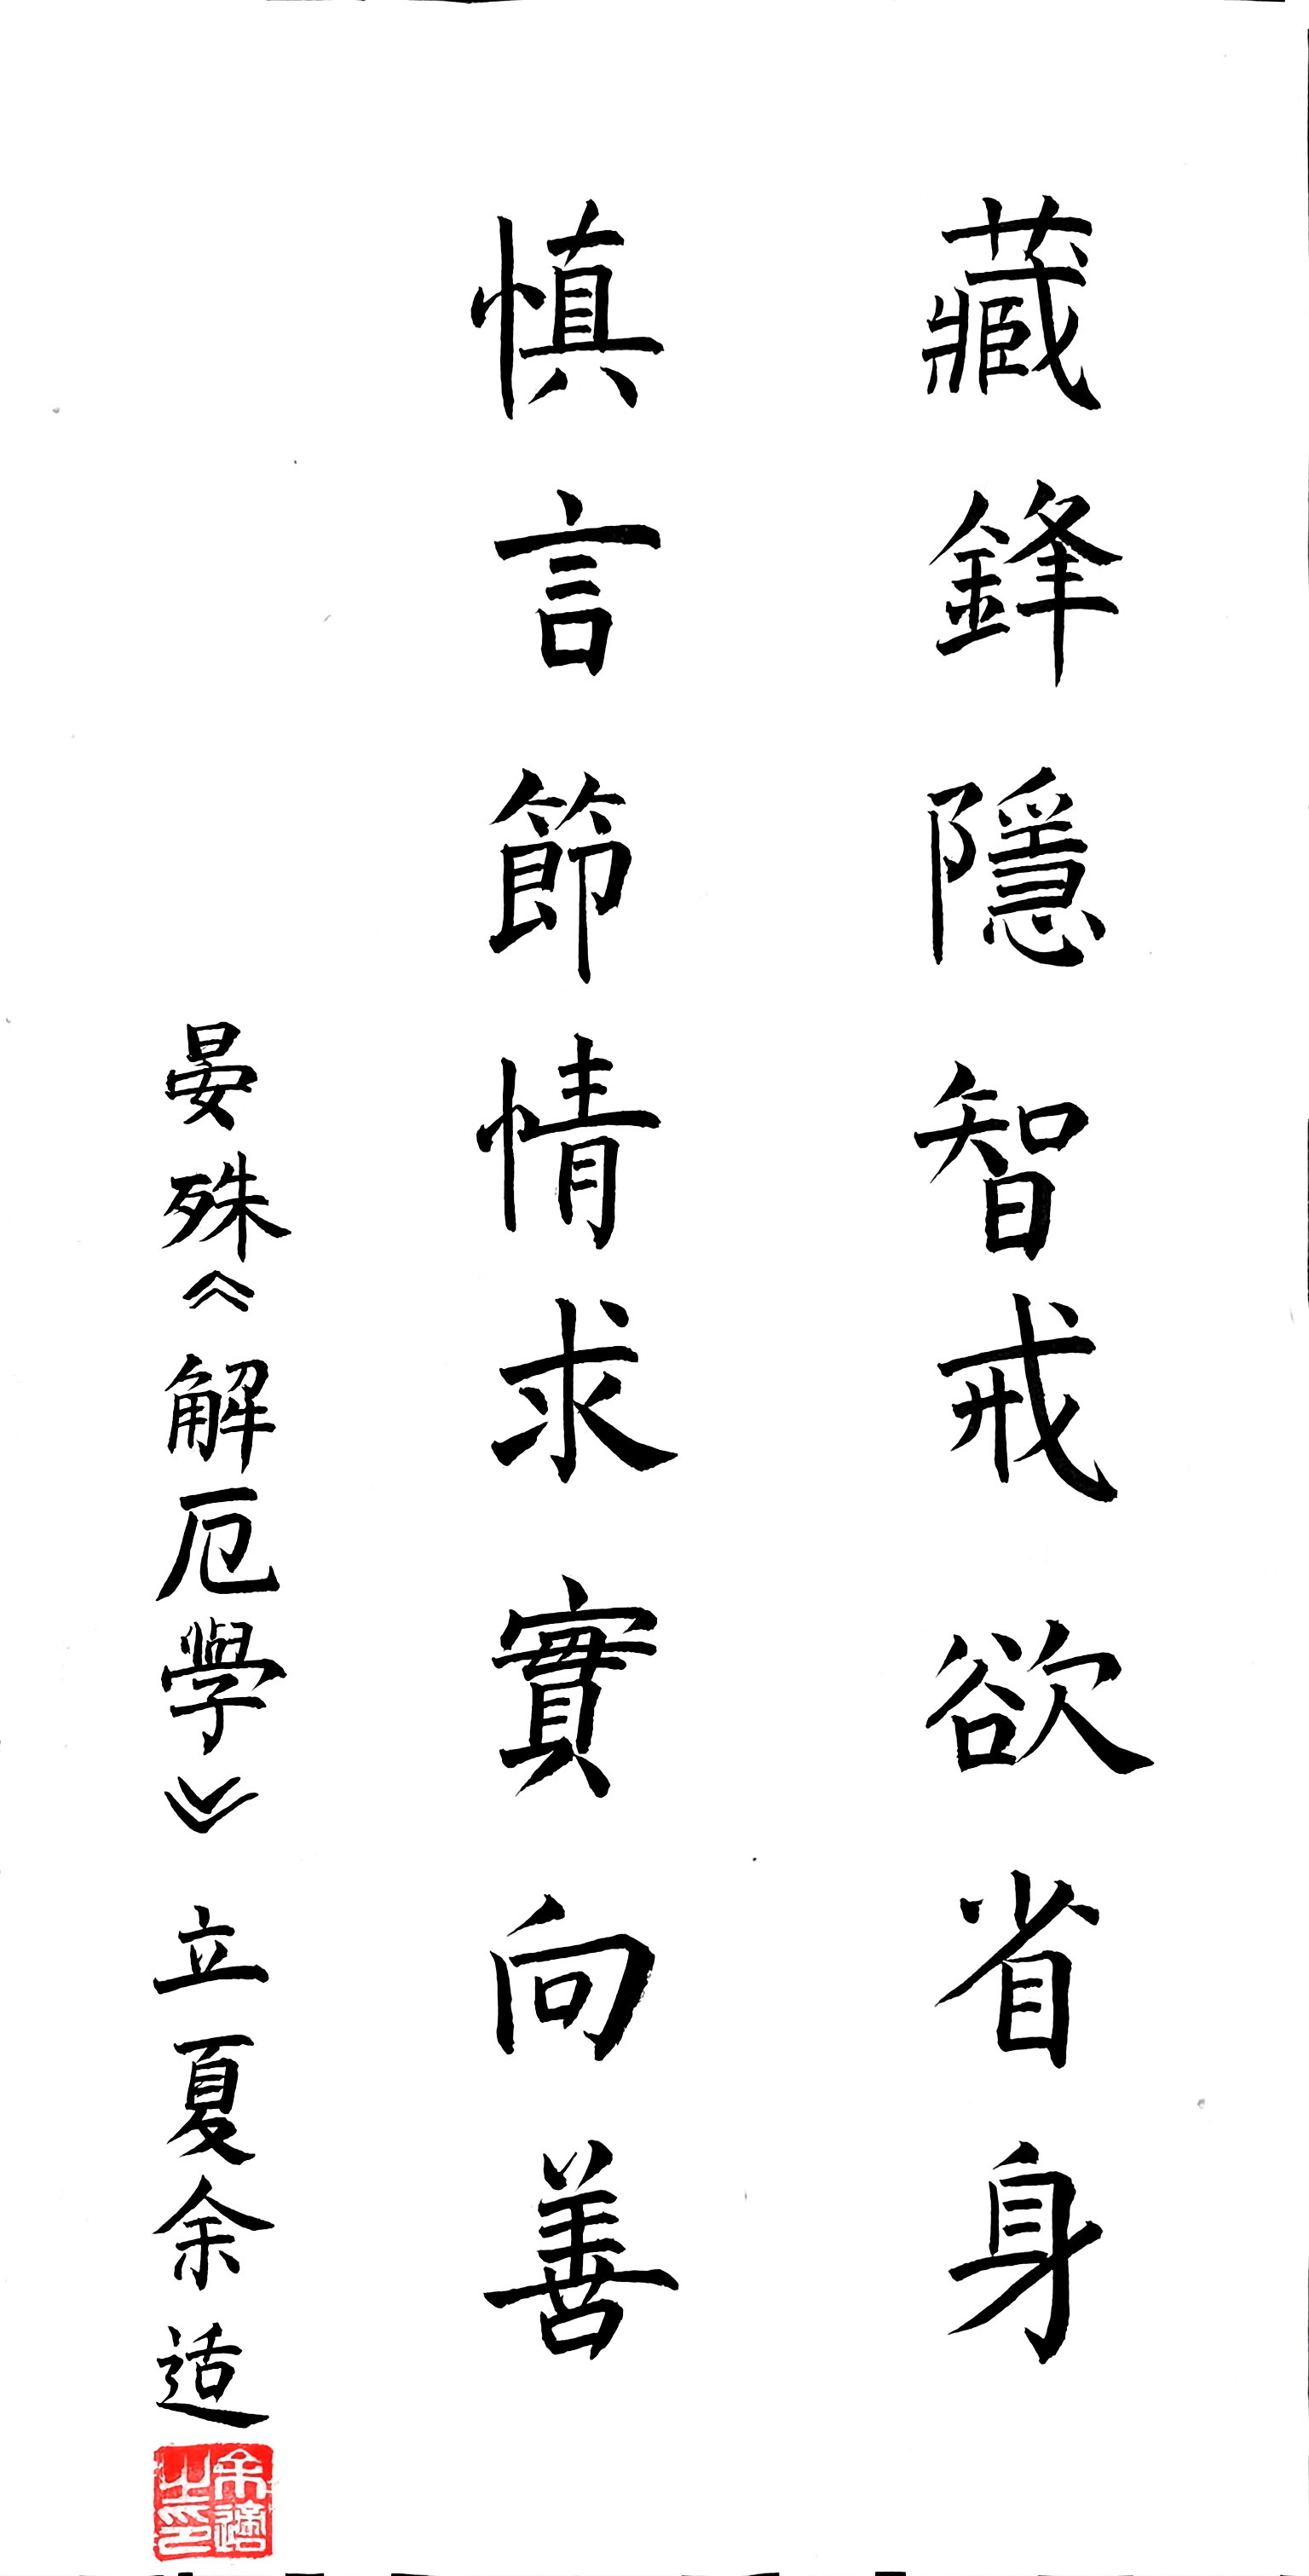 藏鋒隱智戒欲省身
慎言節情求實向善
晏殊《解厄學》立夏余适
余適之印